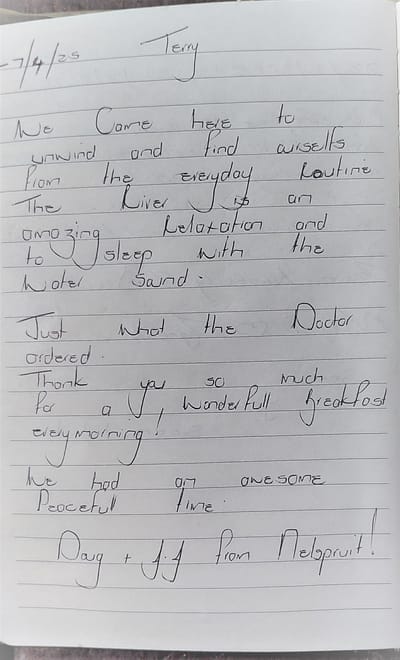 -7/4/25
Terry
We Come here to
unwind and find ourselfs
from the everyday Routine
The River is an
amazing Relaxation and
to sleep with the
Water Sound.
Just what the Doctor
ordered.
Thank you so much
for a wonderfull Breakfast
every morning!
We had an awesome
Peacefull Time.
Doug + J.J from Nelspruit!